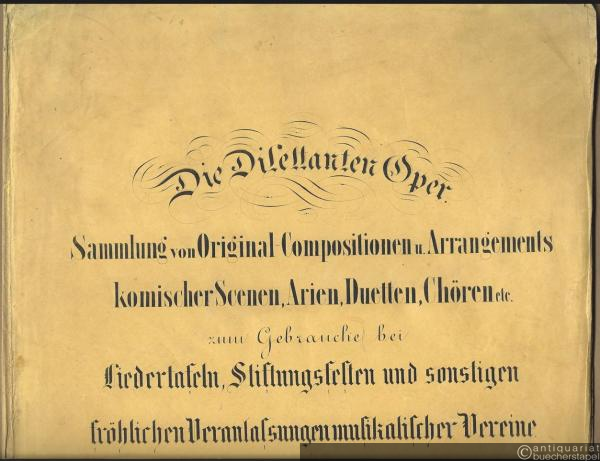 Die Dilettanten Oper.
Sammlung von Original-Compositionen u. Arrangements
komischer Scenen, Arien, Duetten, Chören etc.
zum Gebrauche bei
Liedertafeln, Stiftungsfesten und sonstigen
fröhlichen Veranlassungen musikalischer Vereine
© antiquariat
buecherstapel